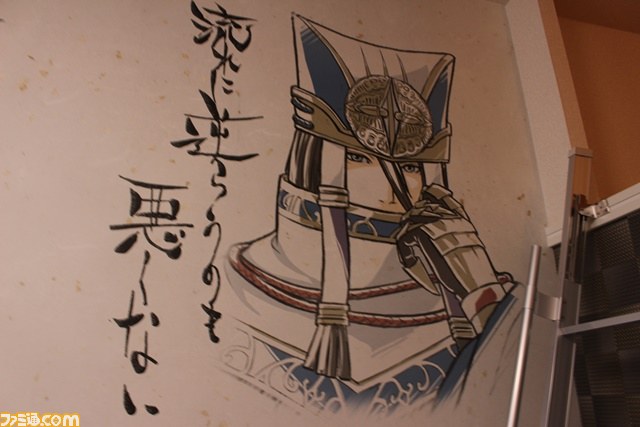 流れに
逆らうのも
悪くない
ファミ通.com